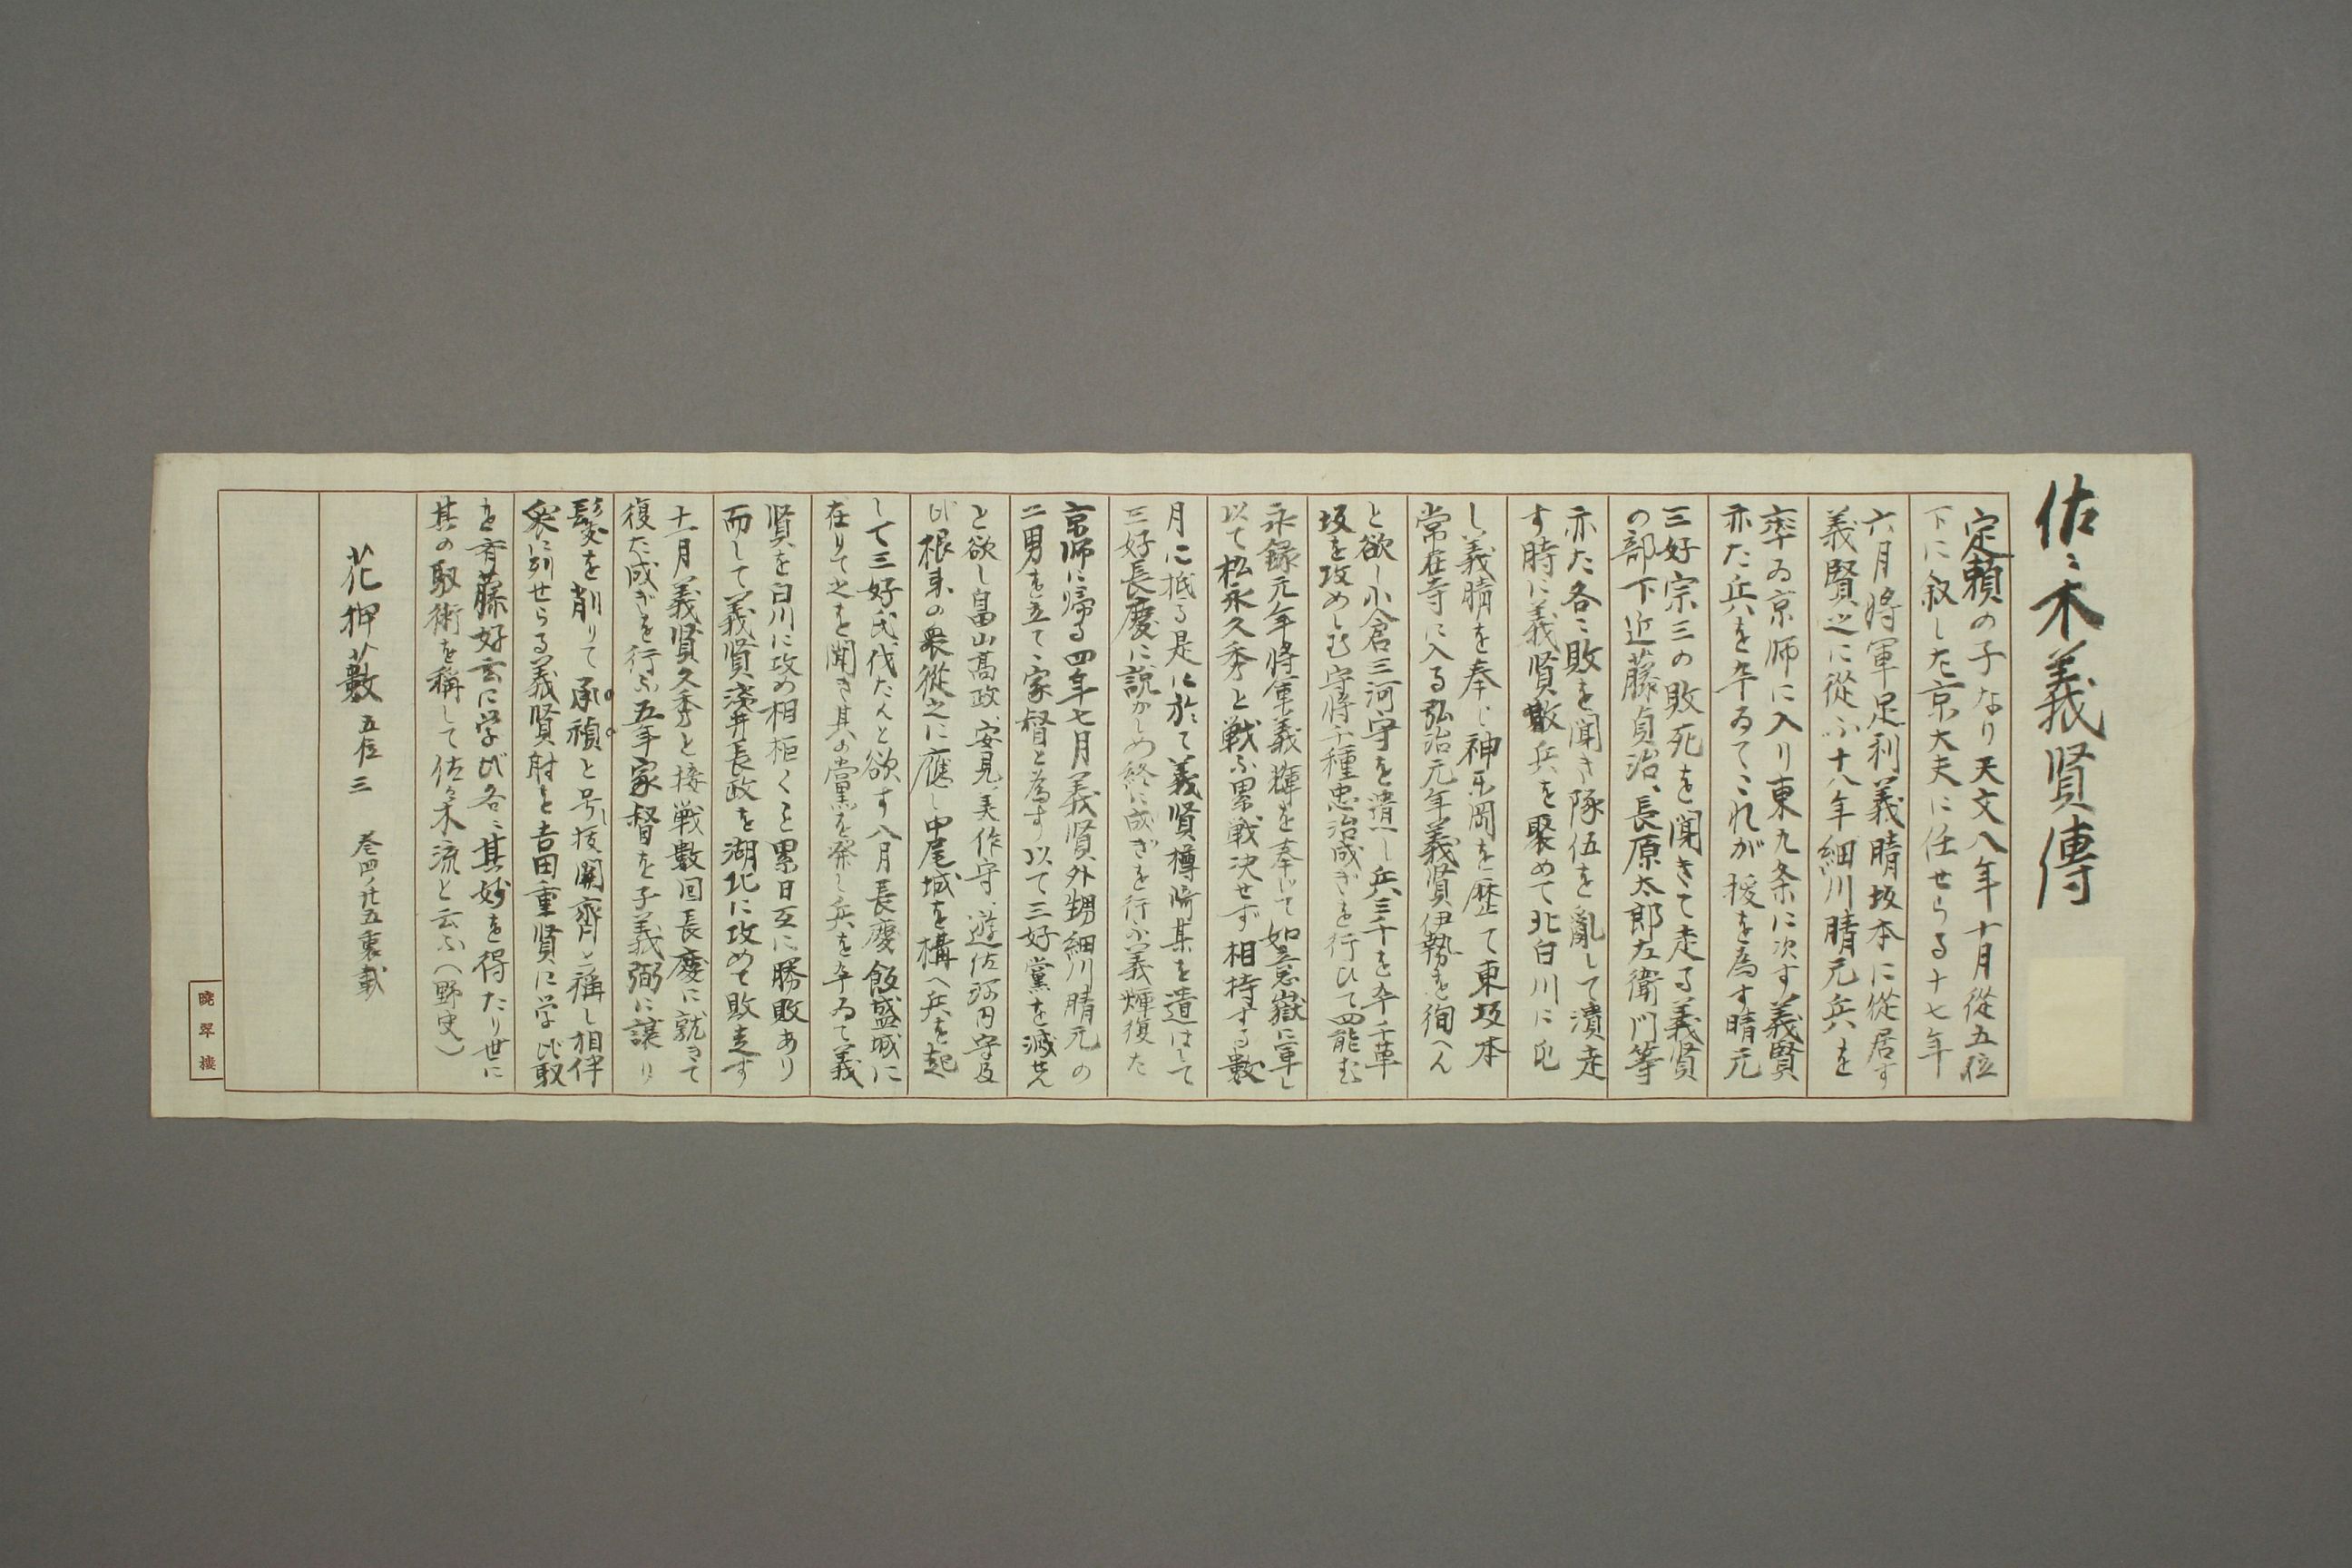 佐々木義賢傳
定頼の子なり天文八年十月從五位
下に叙し左京大夫に任せらる十七年
六月將軍足利義晴坂本に從居す
義賢之に從ふ十八年細川晴元兵を
率ゐ京师に入り東九条に次す義賢
亦た兵を率ゐてこれが援を為す晴元
三好宗三の敗死を聞きて走る義賢
の部下近藤貞治、長原太郎左衛門等
亦た各〻敗を聞き隊伍を亂して潰走
す時に義賢散兵を聚めて北白川に屯
し義晴を奉じ神楽岡を歴て東坂本
常在寺に入る弘治元年義賢伊勢を徇へん
と欲し小倉三河守を遣へし兵三千を率千草
坂を攻めしむ守將千種忠治成ぎを行ひて四能む
永録元年將軍義輝を奉じて如意嶽に軍し
以て松永久秀と戦ふ累戦決せず相持する數
月に抵る是に於て義賢樽﨑某を遣はして
三好長慶に説かしめ終に成ぎを行ふ義輝復た
京师に帰る四年七月義賢外甥細川晴元の
二男を立て家督と為す以て三好黨を滅せん
と欲し畠山髙政、安見美作守、遊佐河内守及
び根来の衆從之に應し中尾城を構へ兵を起
して三好氏伐たんと欲す八月長慶飯盛城に
在りて之を聞き其の黨を発し兵を率ゐて義
賢を白川に攻め相拒くこと累日互に勝敗あり
而して義賢淺井長政を湖北に攻めて敗走す
十一月義賢久秀と接戦數回長慶に就きて
復た成ぎを行ふ五年家督を子義弼に譲り
髪を削りて承禎と号し抜関齊と稱し相伴
衆に列せらる義賢射を吉田重賢に学び馭
を斉藤好玄に学び各〻其妙を得たり世に
其の馭術を稱して佐々木流と云ふ(野史)
花押藪 五位三 巻四ノ廿五裏載
暁翠樓